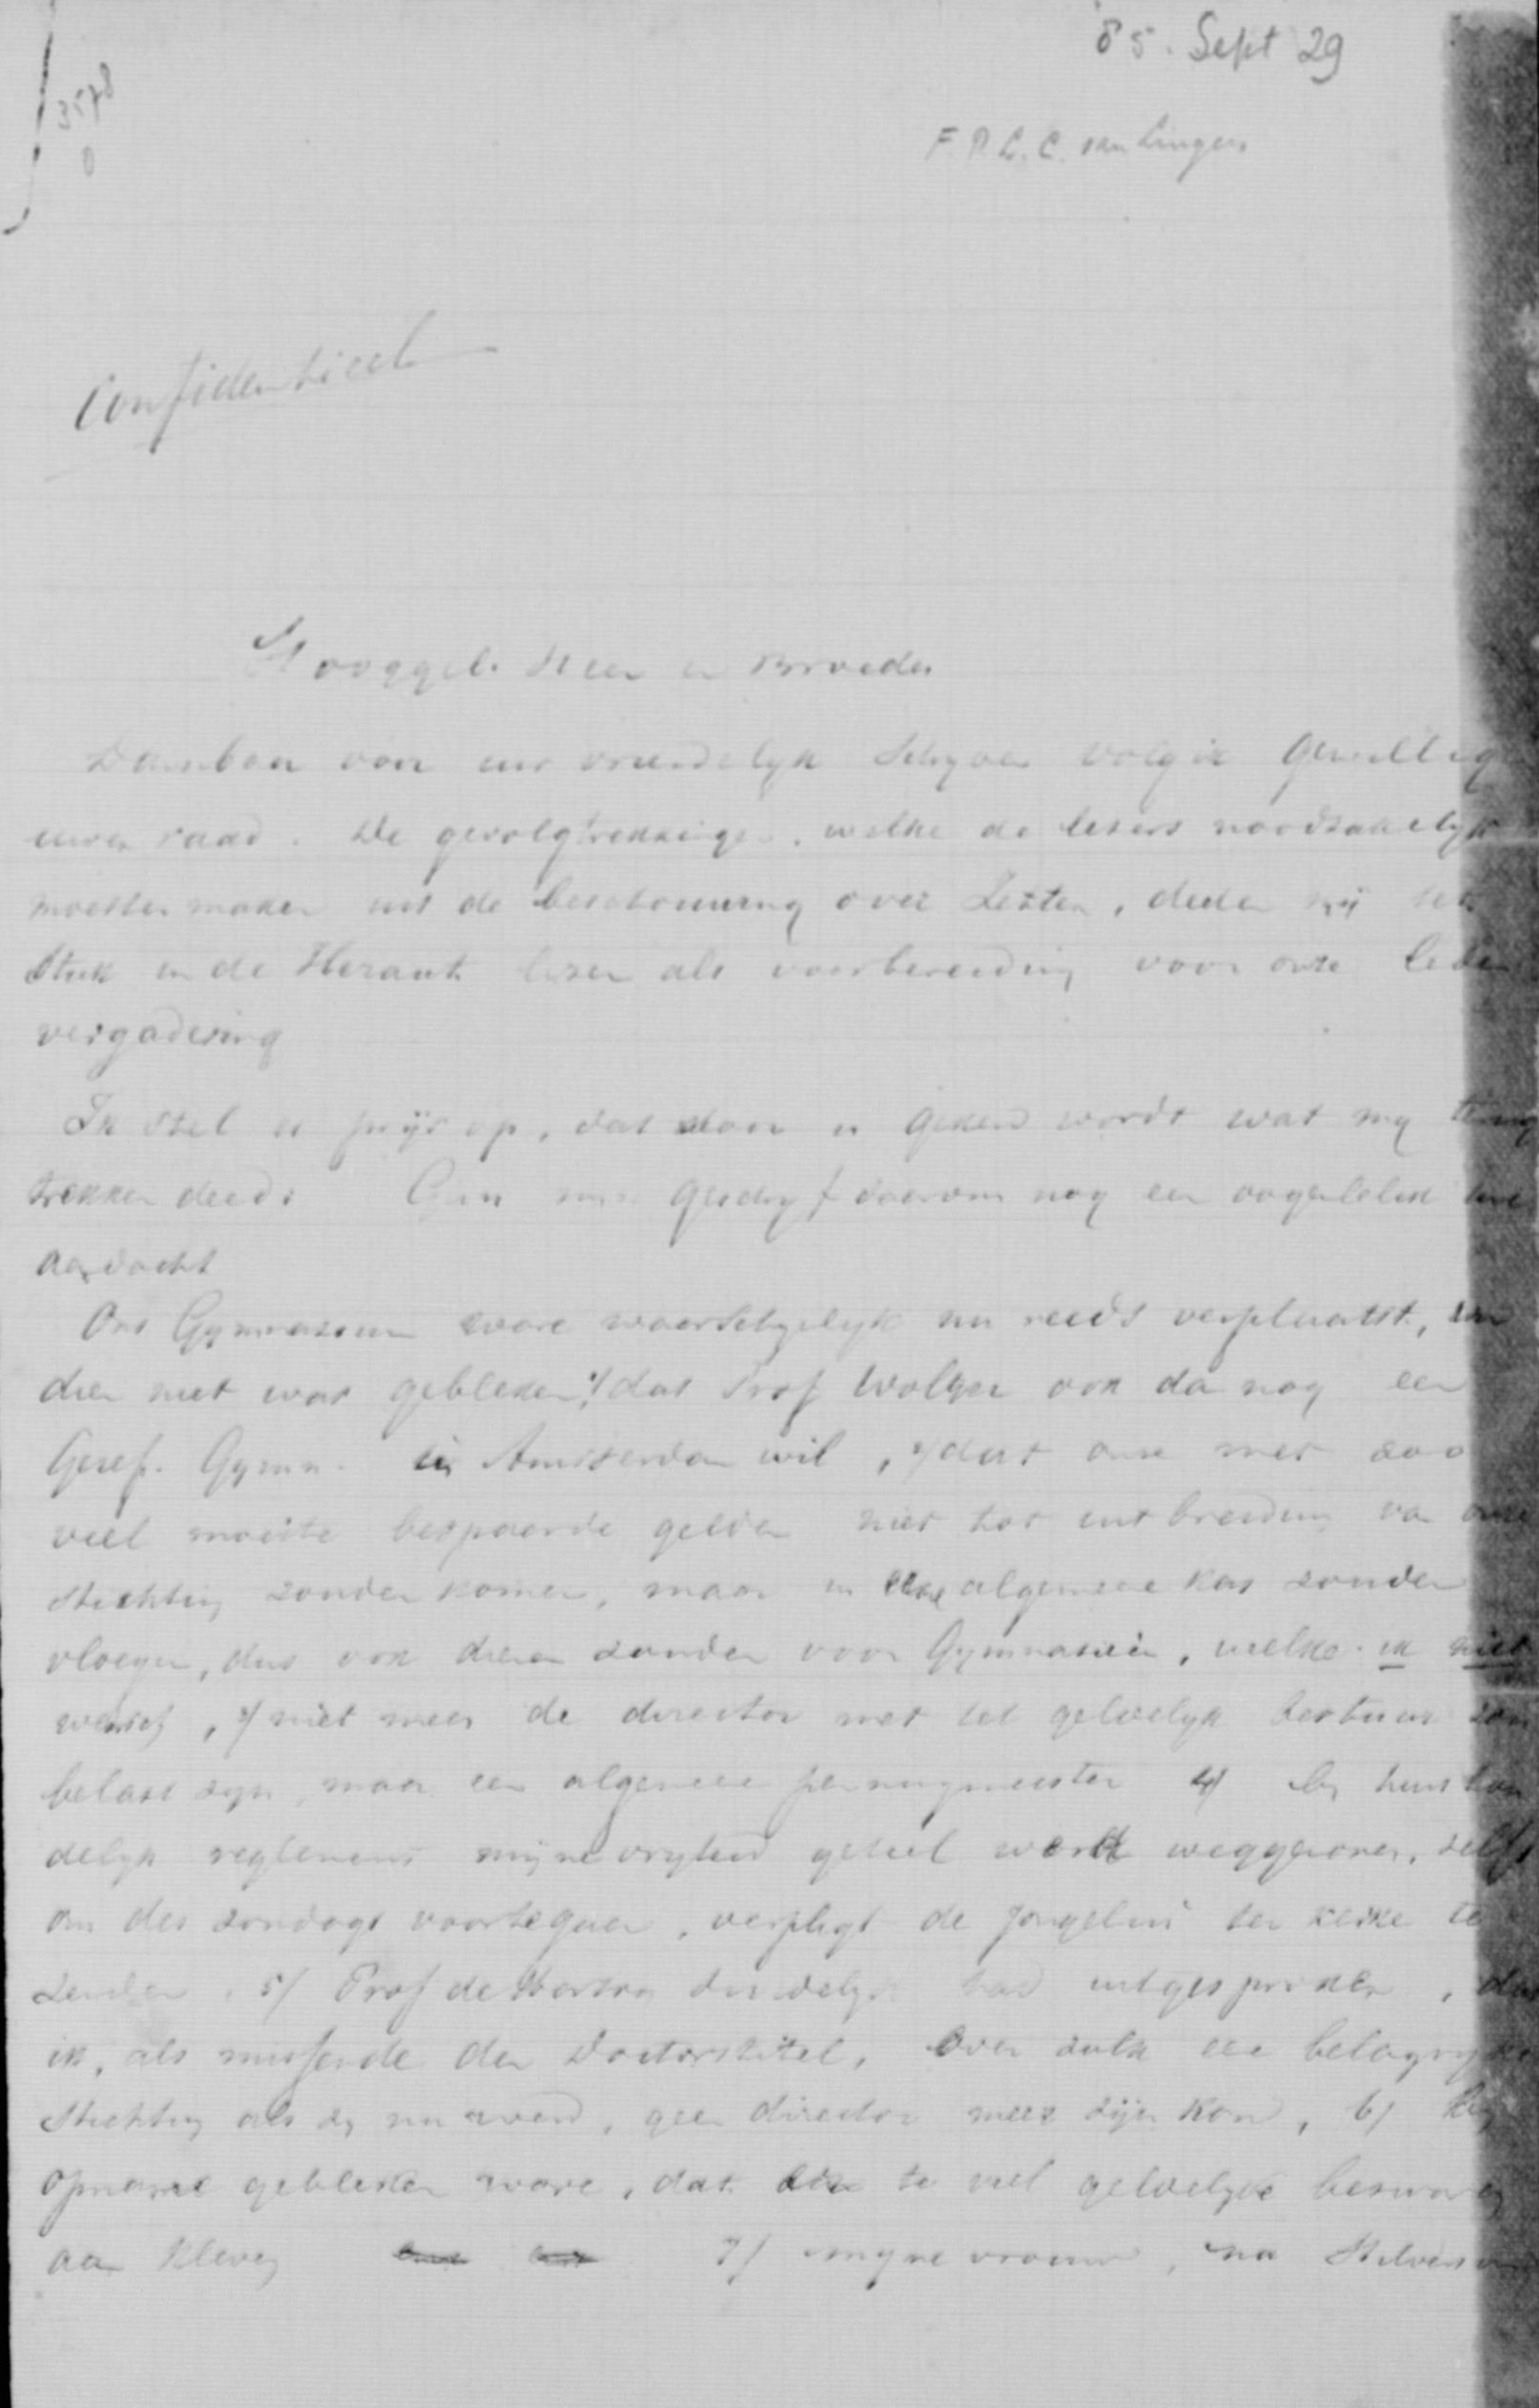 85. Sept 29
3578
0
F. P. L. C. van Lingen
Confidentieel
Hooggel. Heer en Broeder
Dankbaar voor uw vriendelyk schryven volg ik gewillig
uwen raad. De gevolgtrekkingen, welke de lezers noodzakelyk
moesten maken uit de beschouwing over Zetten, deden mij het
stuk in de Heraut lezen als voorbereiding voor onze leden
vergadering
Ik stel er prijs op, dat door u gekend wordt wat my terug
trekken deed: Gun mijn geschryf daarom nog een oogenblik uwe
aandacht
Ons Gymnasium ware waarschynlyk nu reeds verplaatst, in
dien niet was gebleken 1/ dat Prof Woltjer ook dan nog een
Geref. Gymn. in Amsterdam wil, 2/ dat onze met zoo
veel moeite bespaarde gelden niet tot uitbreiding van onze
stichting zouden komen, maar in eene algemeene kas zouden
vloeyen, dus ook dienen zouden voor Gymnasien, welke ik niet
wensch, 3/ niet meer de director met het geldelyk bestuur zou
belast zyn, maar een algemeene penningmeester 4/ by huishou
delyk reglement mijne vryheid geheel werd weggenomen, zelfs
om des zondags voortegaan, verpligt de jongelui ter kerke te
zenden, 5/ Prof de Hartog duidelyk had uitgesproken, dat
ik, als missende den Doctorstitel, over zulk eene belangryke
stichting als zy nu werd, geen director meer zijn kon, 6/ by
opname gebleken ware, dat er te veel geldelyke bezwaren
aan kleven 7/ mijne vrouw, na Hilversum